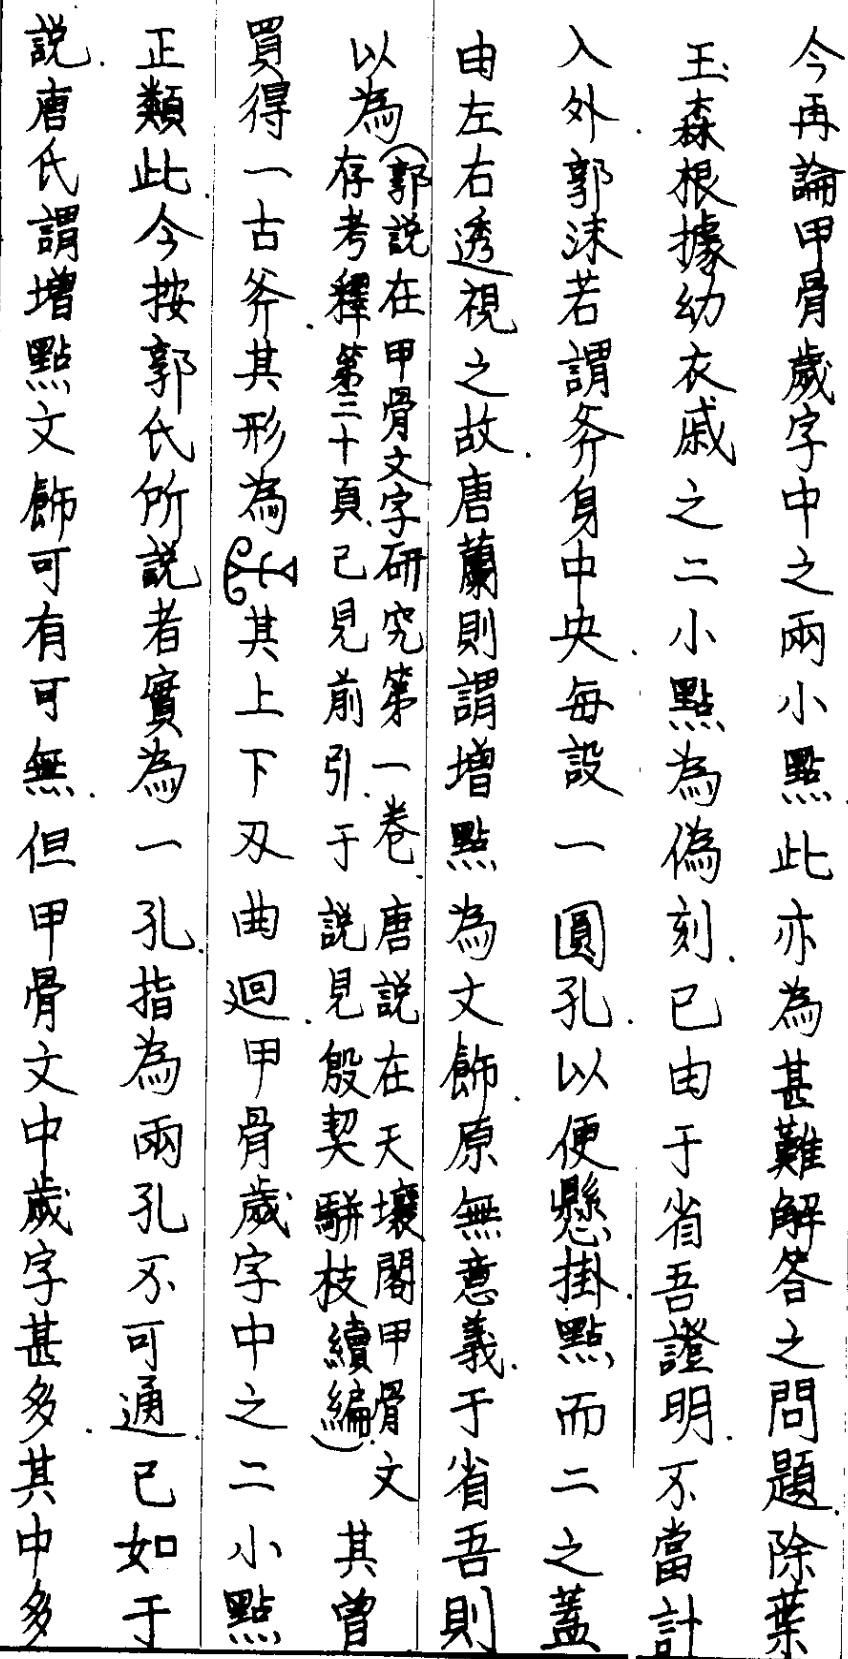 今再論甲骨歲字中之兩小點.此亦為甚難解答之問題.除葉
玉森根據幼衣戚之二小點為偽刻.已由于省吾證明.不當計
入外.郭沫若謂斧身中央.每設一圓孔.以便懸掛.點而二之蓋
由左右透視之故.唐蘭則謂增點為文飾.原無意義.于省吾則
以為(郭説在甲骨文字研究第一卷 唐説在天壤閣甲骨文存考釋第三十頁.已見前引.于説見殷契駢枝續編).其曾
買得一古斧.其形為 其上下刃曲迴.甲骨歲字中之二小點
正類此.今按郭氏所説者實為一孔.指為兩孔不可通.已如于
説.唐氏謂增點文飾可有可無.但甲骨文中歲字甚多.其中多